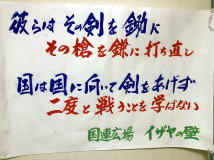 彼らは その剣を鋤に
その槍を鎌に打ち直し
国は国に向いて剣をあげず
二度と戦うことを学ばない
国連広場 イザヤの壁